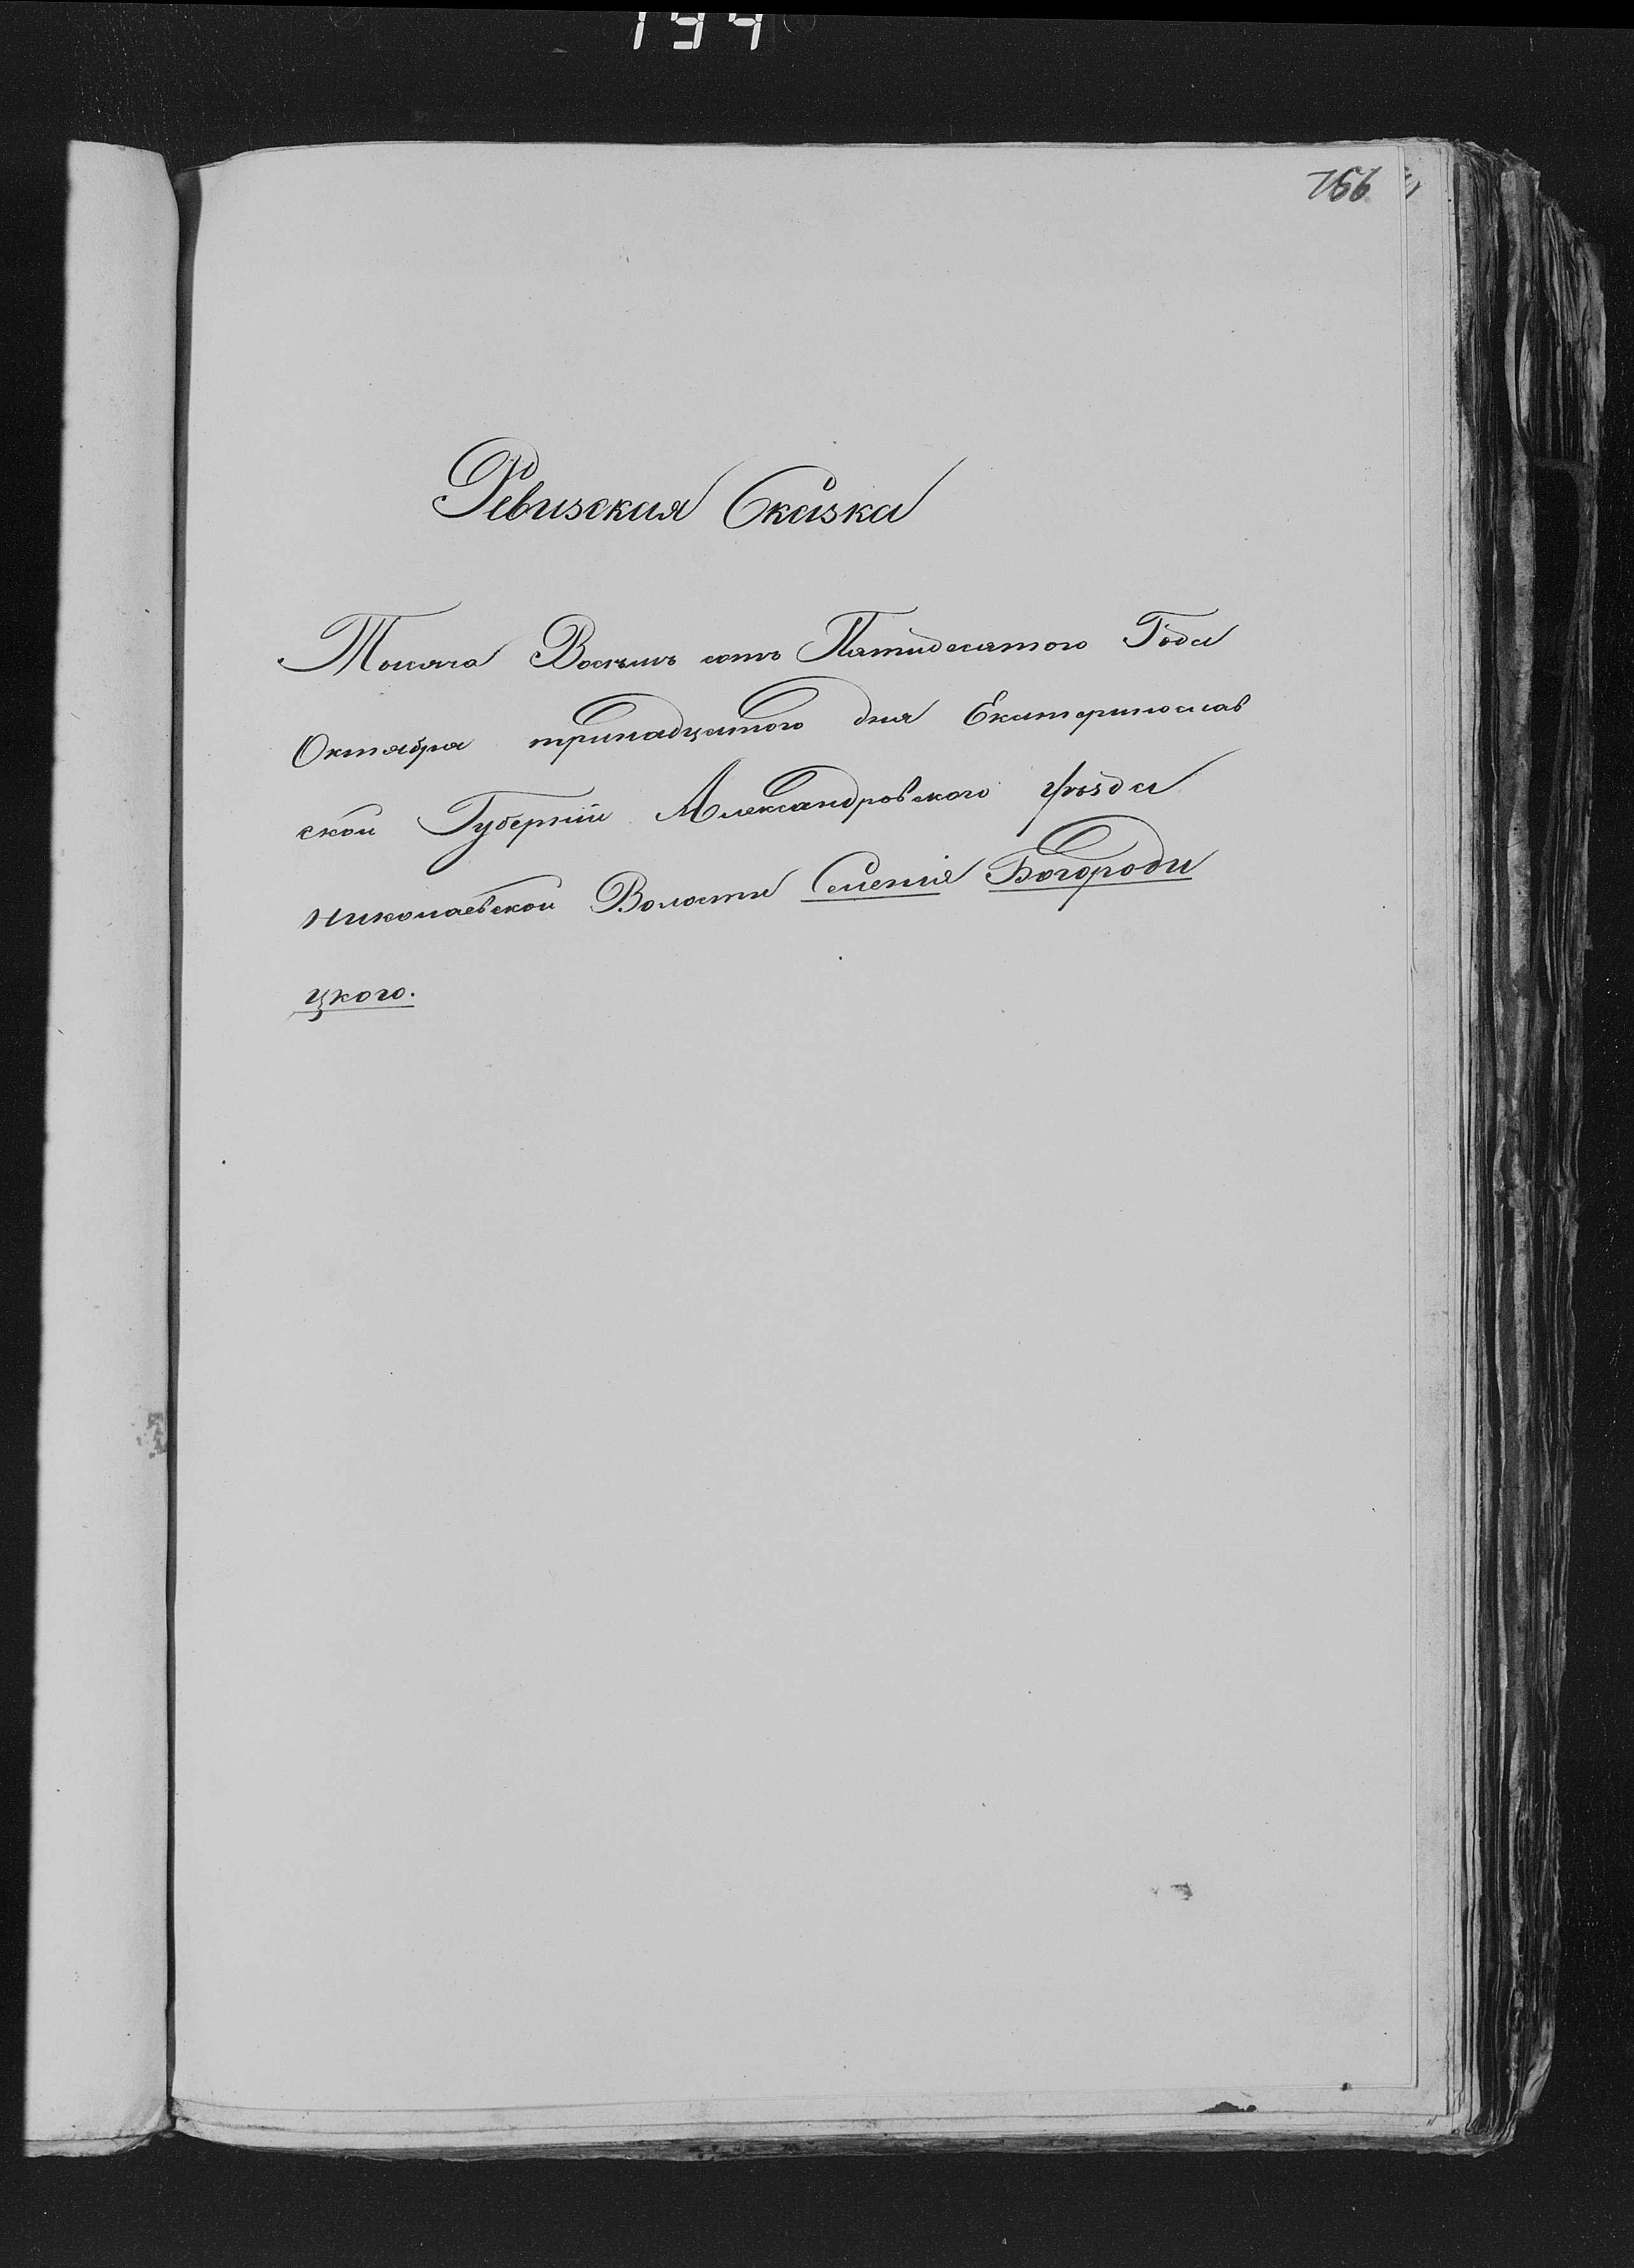 194
766
Ревизская Сказка
Тысяча Восемь сотъ Пятидесятого Года
Октября тринадцатого дня Екатеринослав
ской Губерніи Александровского уѣзда
Николаевской Волости Селенія Богороди
цкого.